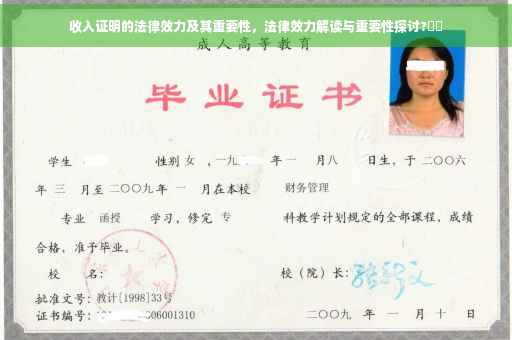 收入证明的法律效力及其重要性，法律效力解读与重要性探讨?
成人高等教育
毕业证书
学生 性别 女 ，一九 年 一 月 八 日生，于 二〇〇六
年 三 月至 二〇〇九 年 一 月在本校 财务管理
专业 函授 学习，修完 专 科教学计划规定的全部课程，成绩
合格，准予毕业。
校 名： 校（院）长：
批准文号：教计[1998]33号
证书编号： 06001310 二〇〇九 年 一 月 十 日